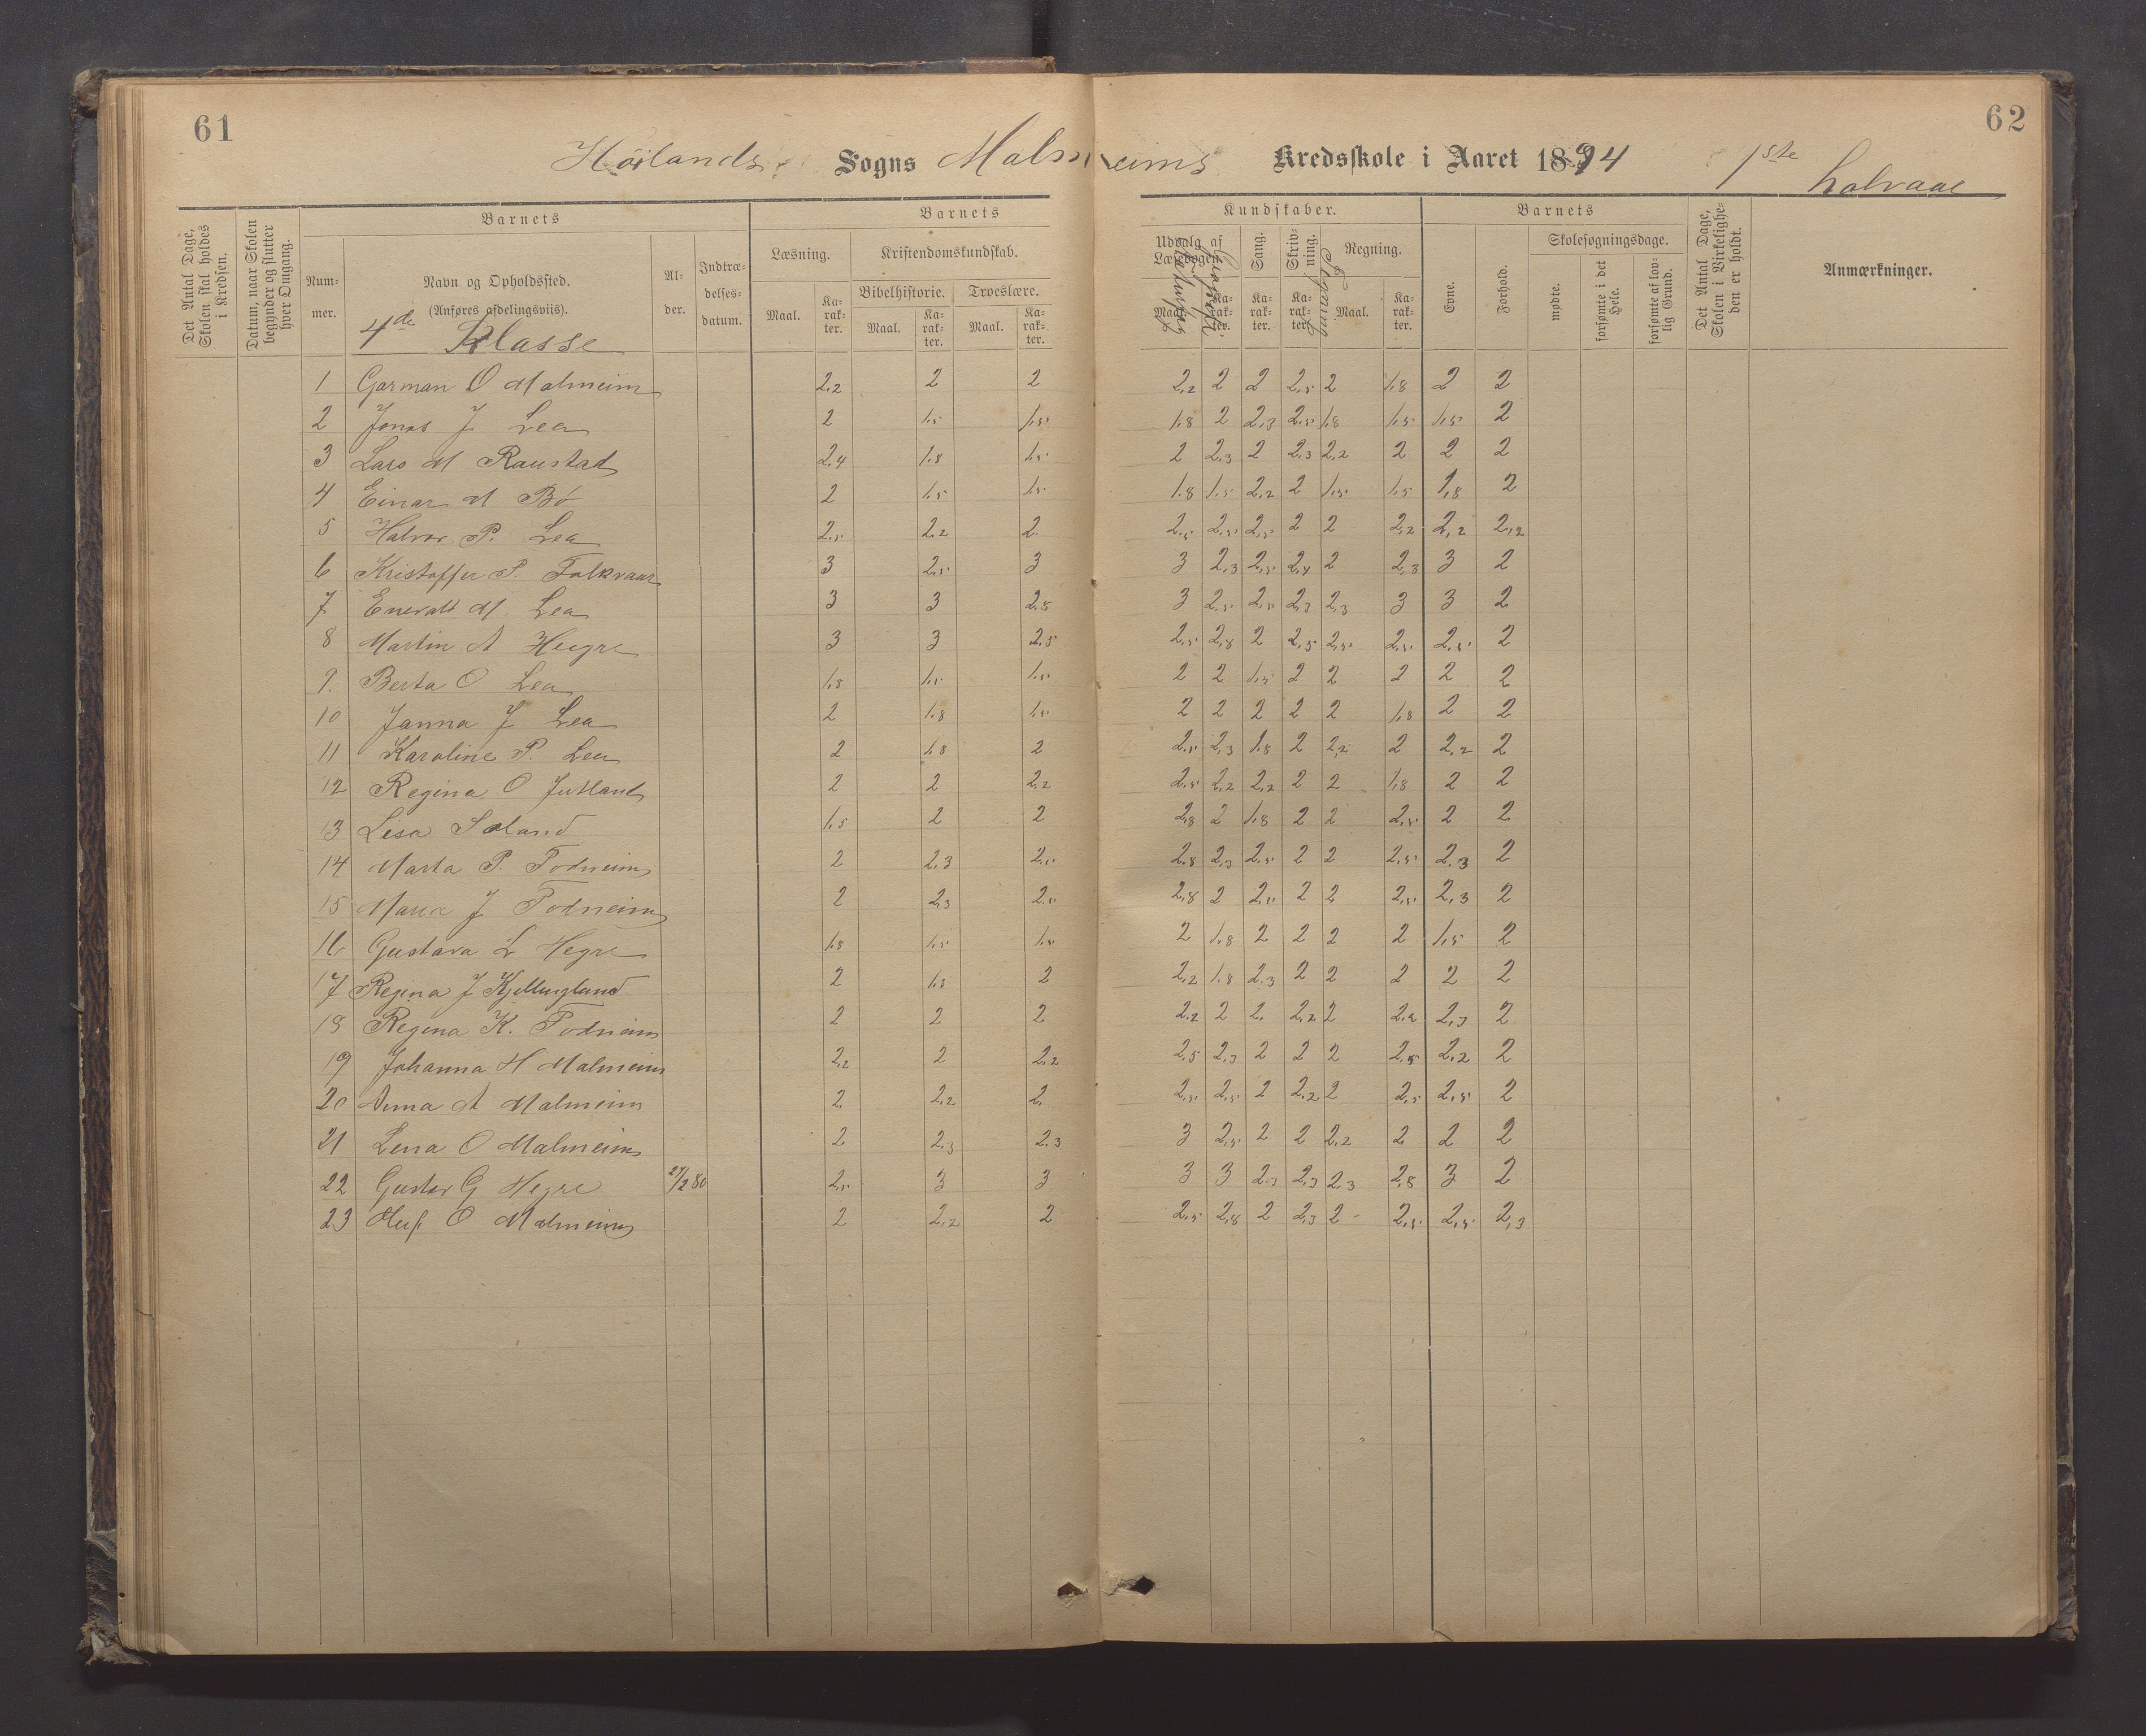 61
62
Höilands Sogns Malmeims Kredsskole i Aaret 1894 1ste halvaar
Det Antal Dage, Skolen skal holdes i Kredsen.
Datum, naar Skolen begynder og slutter hver Omgang.
Barnets
Nummer.
Navn og Opholdssted.
(Anføres afdelingsviis).
4de Klasse
Alder.
Indtrædelsesdatum.
Barnets
Læsning.
Maal.
Karakter.
Kristendomskundskab.
Bibelhistorie.
Maal.
Karakter.
Troeslære.
Maal.
Karakter.
Kundskaber.
Udvalg af Læsebogen.
Maal.
Karakter.
Sang.
Karakter.
Skrivning.
Karakter.
Regning.
Maal.
Karakter.
Barnets
Evne.
Forhold.
Skolesøgningsdage.
mødte.
forsømte i det Hele.
forsømte af lovlig Grund.
Det Antal Dage, Skolen i Virkeligheden er holdt.
Anmærkninger.
1 Garman O Malmeim 2,2 2 2 2,2 2 2 2,5 2 1,8 2 2
2 Jonas J Lea 2 1,5 1,5 1,8 2 2,3 2,5 1,8 1,5 1,5 2
3 Lars M Raustad 2,4 1,8 1,5 2 2,3 2 2,3 2,2 2 2 2
4 Einar M Bö 2 1,5 1,5 1,8 1,5 2,2 2 1,5 1,5 1,8 2
5 Halvor P. Lea 2,5 2,2 2 2,5 2,5 2,5 2 2 2,2 2,2 2,2
6 Kristoffer P. Folkvaar 3 2,5 3 3 2,3 2,5 2,4 2 2,3 3 2
7 Enevald M Lea 3 3 2,8 3 2,5 2,5 2,3 2,3 3 3 2
8 Martin A Hegre 3 3 2,5 2,5 2,8 2 2,5 2,5 2,5 2,5 2
9. Berta O Lea 1,8 1,5 1,5 2 2 1,5 2 2 2 2 2
10 Janna J Lea 2 1,8 1,5 2 2 2 2 2 1,8 2 2
11 Karoline P. Lea 2 1,8 2 2,5 2,3 1,8 2 2,2 2 2,2 2
12 Regina O Jutland 2 2 2,2 2,5 2,2 2,2 2 2 1,8 2 2
13 Lisa Soland 1,5 2 2 2,8 2 1,8 2 2 2,5 2 2
14 Marta P. Todneim 2 2,3 2,5 2,8 2,3 2,5 2 2 2,5 2,3 2
15 Maria J Todneim 2 2,3 2,5 2,8 2 2,5 2 2 2,5 2,3 2
16 Gustava L Hegre 1,8 1,5 1,5 2 1,8 2 2 2 2 1,5 2
17 Regina J Kyllingland 2 1,8 2 2,2 1,8 2,3 2 2 2 2 2
18 Regina K. Todneim 2 2 2 2,2 2 2 2,2 2 2,2 2,3 2
19 Johanna H Malmeim 2,2 2 2,2 2,5 2,3 2 2 2 2,5 2,2 2
20 Anna A Malmeim 2 2,2 2 2,5 2,5 2 2,2 2 2,5 2,5 2
21 Lena O Malmeim 2 2,3 2,3 3 2,5 2 2 2,2 2 2 2
22 Gustav G Hegre 27/2 80 2,5 3 3 3 3 2,3 2,3 2,3 2,8 3 2
23 O Malmeim 2 2,2 2 2,5 2,8 2 2,3 2 2,5 2,5 2,3